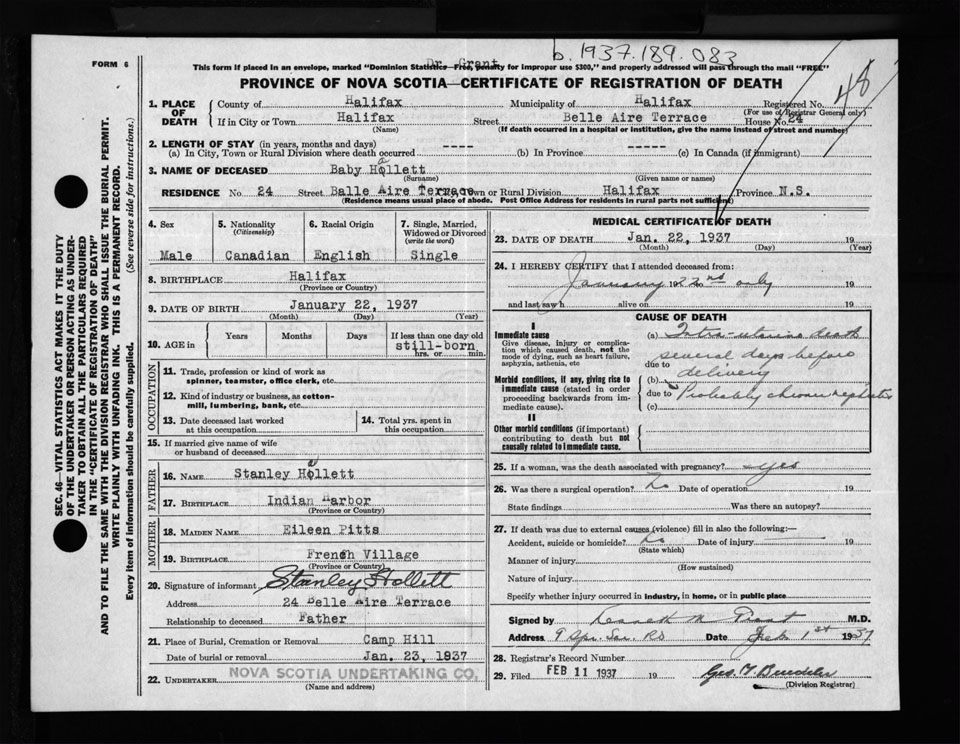 b. 1937.189.083
FORM 6
This form if placed in an envelope, marked "Dominion Statistics—Free, penalty for improper use $300," and properly addressed will pass through the mail "FREE"
Dr. Grant
PROVINCE OF NOVA SCOTIA—CERTIFICATE OF REGISTRATION OF DEATH
48
1. PLACE OF DEATH
County of Halifax Municipality of Halifax Registered No.
(For use of Registrar General only)
If in City or Town Halifax Street Belle Aire Terrace House No. 24
(Name) (If death occurred in a hospital or institution, give the name instead of street and number)
2. LENGTH OF STAY (in years, months and days)
(a) In City, Town or Rural Division where death occurred ---- (b) In Province ----- (c) In Canada (if immigrant)
3. NAME OF DECEASED Baby Hollett
a
(Surname) (Given name or names)
RESIDENCE No. 24 Street Balle Aire Terrace Town or Rural Division Halifax Province N.S.
(Residence means usual place of abode. Post Office Address for residents in rural parts not sufficient)
4. Sex 5. Nationality 6. Racial Origin 7. Single, Married,
(Citizenship) Widowed or Divorced
(write the word)
Male Canadian English Single
8. BIRTHPLACE Halifax
(Province or Country)
9. DATE OF BIRTH January 22, 1937
(Month) (Day) (Year)
10. AGE in Years Months Days If less than one day old
still-born
hrs. or min.
OCCUPATION
11. Trade, profession or kind of work as
spinner, teamster, office clerk, etc.
12. Kind of industry or business, as cotton-
mill, lumbering, bank, etc.
13. Date deceased last worked at this occupation 14. Total yrs. spent in this occupation
15. If married give name of wife
or husband of deceased
FATHER
16. NAME Stanley Hollett
a
17. BIRTHPLACE Indian Harbor
(Province or Country)
MOTHER
18. MAIDEN NAME Eileen Pitts
19. BIRTHPLACE French Village
(Province or Country)
20. Signature of informant Stanley Hollett
Address 24 Belle Aire Terrace
Relationship to deceased Father
21. Place of Burial, Cremation or Removal Camp Hill
Date of burial or removal Jan. 23, 1937
22. UNDERTAKER NOVA SCOTIA UNDERTAKING CO.
(Name and address)
MEDICAL CERTIFICATE OF DEATH
23. DATE OF DEATH Jan. 22, 1937 19
(Month) (Day) (Year)
24. I HEREBY CERTIFY that I attended deceased from:
January 22nd only 19
and last saw h alive on 19
CAUSE OF DEATH
I
Immediate cause
Give disease, injury or complication which caused death, not the mode of dying, such as heart failure, asphyxia, asthenia, etc
(a) Intra-uterine death
several days before
due to
delivery
Morbid conditions, if any, giving rise to immediate cause (stated in order proceeding backwards from immediate cause).
(b)
due to Probably chronic nephritis
(c)
II
Other morbid conditions (if important) contributing to death but not causally related to immediate cause.
25. If a woman, was the death associated with pregnancy? Yes
26. Was there a surgical operation? No Date of operation 19
State findings Was there an autopsy?
27. If death was due to external causes (violence) fill in also the following:—
Accident, suicide or homicide? No Date of injury 19
(State which)
Manner of injury
(How sustained)
Nature of injury
Specify whether injury occurred in industry, in home, or in public place
Signed by Grant M.D.
Address 9 Spr. Gar. Rd Date Feb 1st 1937
28. Registrar's Record Number
29. Filed FEB 11 1937 19
(Division Registrar)
SEC. 46—VITAL STATISTICS ACT MAKES IT THE DUTY
OF THE UNDERTAKER OR PERSON ACTING AS UNDER-
TAKER TO OBTAIN ALL THE PARTICULARS REQUIRED
IN THE "CERTIFICATE OF REGISTRATION OF DEATH"
AND TO FILE THE SAME WITH THE DIVISION REGISTRAR WHO SHALL ISSUE THE BURIAL PERMIT.
WRITE PLAINLY WITH UNFADING INK. THIS IS A PERMANENT RECORD.
Every item of information should be carefully supplied. (See reverse side for instructions.)